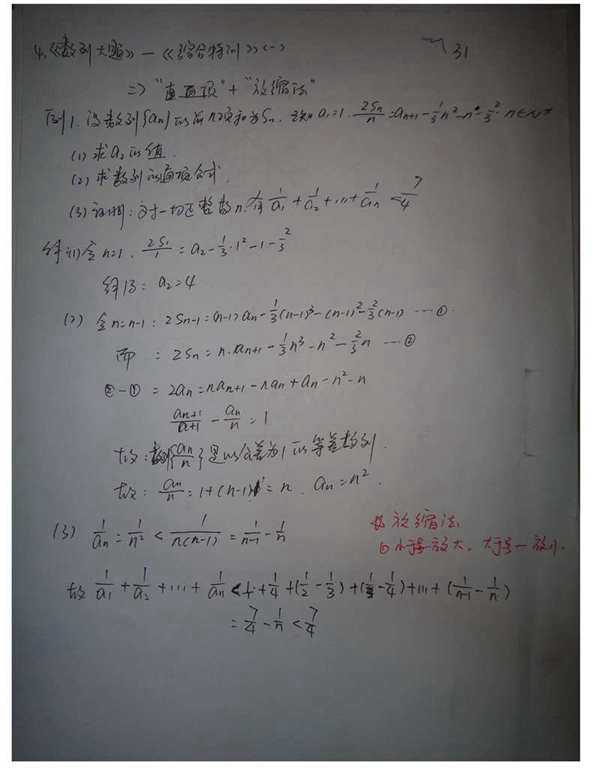 4.《数列大题》—《综合特训》<一> 31
=> "直面项" + "放缩法"
例1. 设数列{an}的前n项和为Sn. 已知a₁=1. 2Sn/n = an+1 - 1/3 n² - n - 2/3. n∈N*
(1) 求a₂的值.
(2) 求数列的通项公式.
(3) 证明: 对一切正整数n. 有 1/a₁ + 1/a₂ + … + 1/an < 7/4
解(1) 令n=1. 2S₁/1 = a₂ - 1/3·1² - 1 - 2/3
解得: a₂=4
(2) 令n=n-1: 2Sn-1 = (n-1)an - 1/3(n-1)³ - (n-1)² - 2/3(n-1) …①
而 : 2Sn = n·an+1 - 1/3n³ - n² - 2/3n …②
②-① = 2an = nan+1 - nan + an - n² - n
an+1/n+1 - an/n = 1
故: 数列{an/n}是以公差为1的等差数列.
故: an/n = 1+(n-1)·1 = n. an=n².
(3) 1/an = 1/n² < 1/n(n-1) = 1/n-1 - 1/n
放缩法
① 小于号放大, 大于号一放小.
故 1/a₁ + 1/a₂ + … + 1/an < 1 + 1/4 + (1/2 - 1/3) + (1/3 - 1/4) + … + (1/n-1 - 1/n)
= 7/4 - 1/n < 7/4